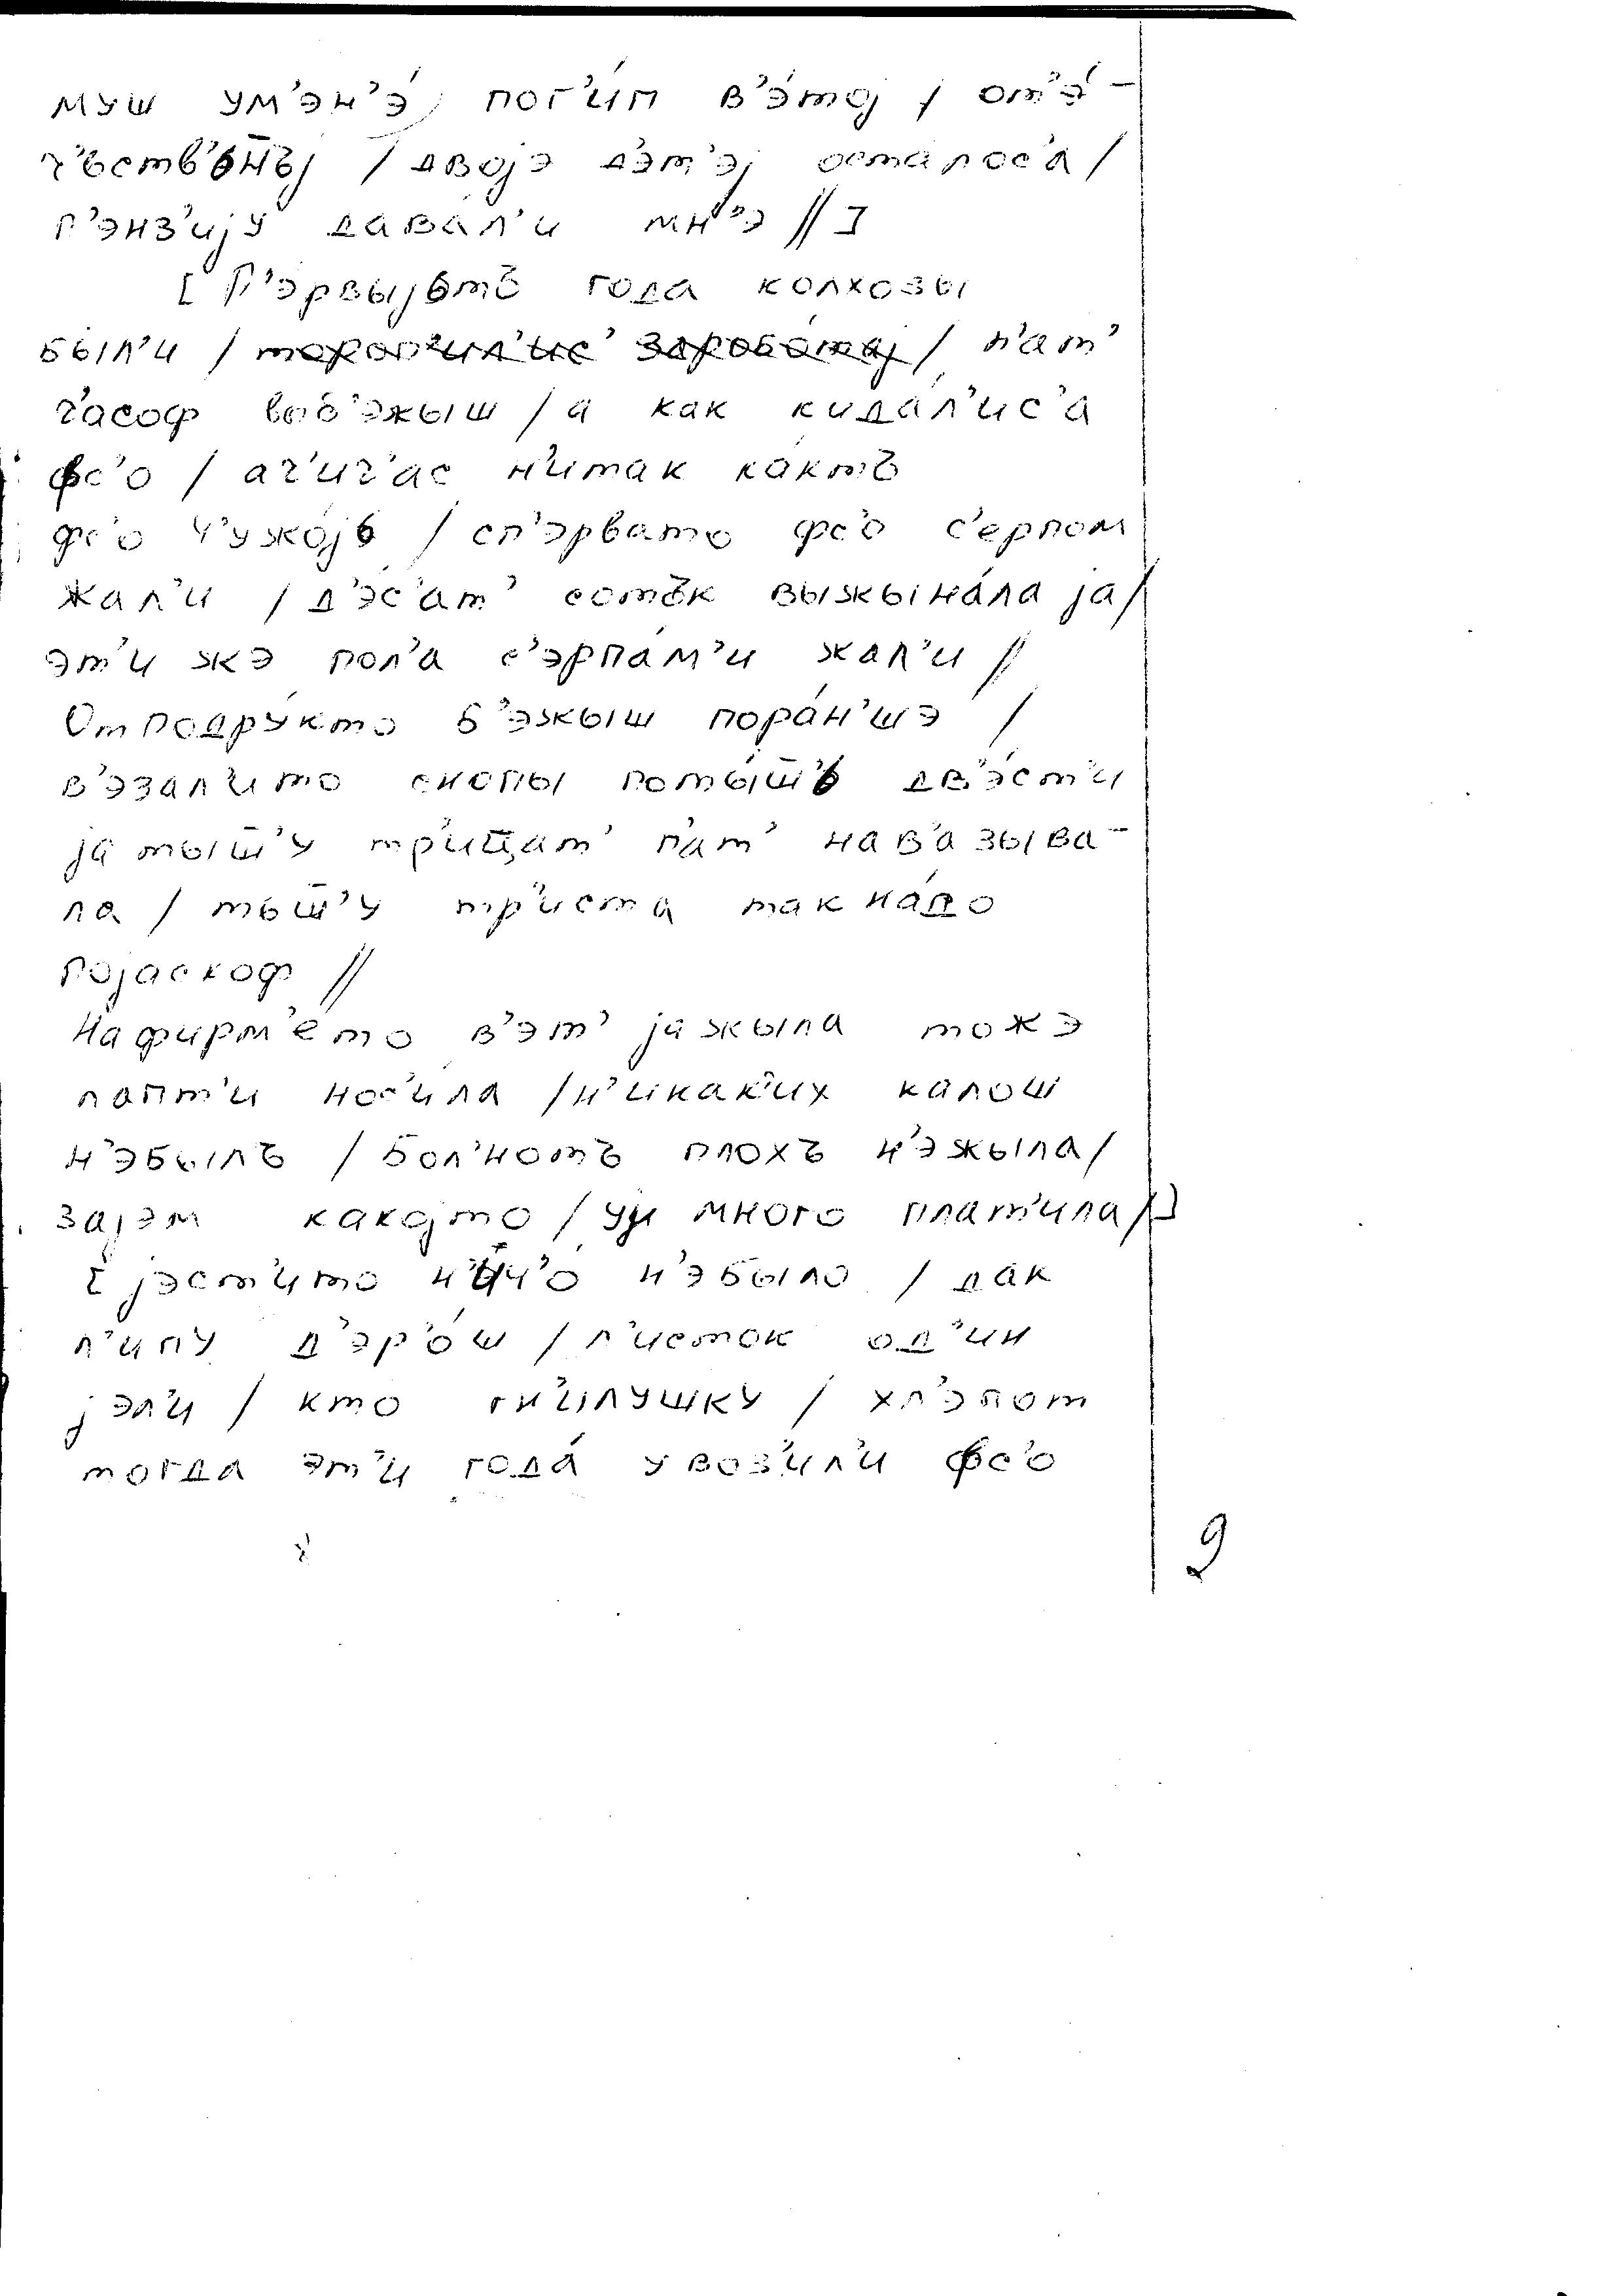 муш ум'эн'э́, пог'и́п в'э́тој / от'э́-
ч'ьств'ь̄нъј / двојэ д'эт'эј осталос'а /
п'энз'ију дава́л'и мн'э // ]
[ П'эрвыјьтъ года колхозы
был'и / тороп'ил'ис' заробо́тај / п'ат'
ч'асоф воб'эжыш / а как кида́л'ис'а
фс'о / ач'ич'ас н'итак ка́ктъ
фс'о ч'ужо́јь / сп'эрвато фс'о с'ерпом
жал'и / д'эс'ат' сотък выжына́ла ја /
эт'и жэ пол'а с'эрпа́м'и жал'и //
Отподру́кто б'эжыш пора́н'шэ /
в'эзал'ито снопы поты́ш̄'ь дв'э́ст'и
ја тыш̄'у тр'иц̄ат' п'ат' нав'азыва-
ла / тыш̄'у тр'иста так на́до
појаскоф //
Нафирм'ето в'эт' јажыла тожэ
лапт'и нос'ила / н'икак'их калош
н'эбылъ / бол'нотъ плохъ н'эжыла /
зајэм какојто / уј много плат'ила / ]
[ јэст'ито н'ич'о́ н'эбыло / дак
л'ипу д'эр'о́ш / л'исток од'ин
јэл'и / кто гн'илушку / хл'эпот
тогда эт'и года́ увоз'ил'и фс'о
9